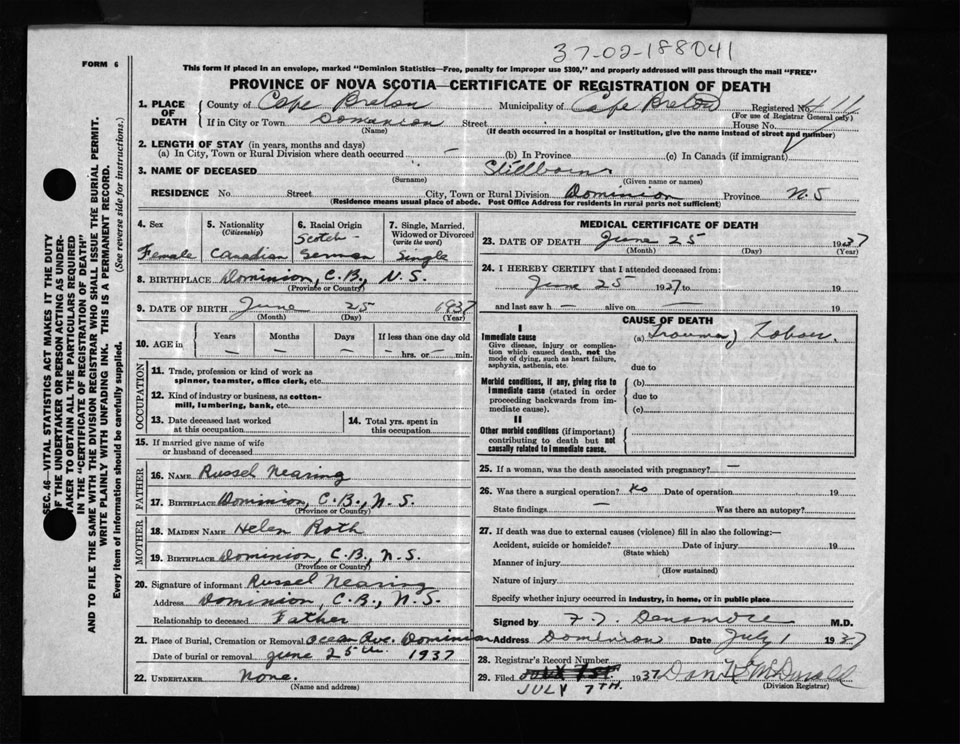 37-02-188041
FORM 6
This form if placed in an envelope, marked "Dominion Statistics—Free, penalty for improper use $300," and properly addressed will pass through the mail "FREE"
PROVINCE OF NOVA SCOTIA—CERTIFICATE OF REGISTRATION OF DEATH
1. PLACE OF DEATH
County of Cape Breton Municipality of Cape Breton Registered No.
(For use of Registrar General only)
If in City or Town Dominion Street House No.
(Name) (If death occurred in a hospital or institution, give the name instead of street and number)
2. LENGTH OF STAY (in years, months and days)
(a) In City, Town or Rural Division where death occurred — (b) In Province (c) In Canada (if immigrant)
3. NAME OF DECEASED Stillborn
(Surname) (Given name or names)
RESIDENCE No. Street City, Town or Rural Division Dominion Province N.S
(Residence means usual place of abode. Post Office Address for residents in rural parts not sufficient)
SEC. 46—VITAL STATISTICS ACT MAKES IT THE DUTY
OF THE UNDERTAKER OR PERSON ACTING AS UNDER-
TAKER TO OBTAIN ALL THE PARTICULARS REQUIRED
IN THE "CERTIFICATE OF REGISTRATION OF DEATH"
AND TO FILE THE SAME WITH THE DIVISION REGISTRAR WHO SHALL ISSUE THE BURIAL PERMIT.
WRITE PLAINLY WITH UNFADING INK. THIS IS A PERMANENT RECORD.
Every item of information should be carefully supplied. (See reverse side for instructions.)
4. Sex
Female
5. Nationality
(Citizenship)
Canadian
6. Racial Origin
Scotch-
German
7. Single, Married,
Widowed or Divorced
(write the word)
Single
8. BIRTHPLACE Dominion, C.B., N.S.
(Province or Country)
9. DATE OF BIRTH June 25 1937
(Month) (Day) (Year)
10. AGE in
Years Months Days If less than one day old
— — — — hrs. or — min.
OCCUPATION
11. Trade, profession or kind of work as
spinner, teamster, office clerk, etc.
12. Kind of industry or business, as cotton-
mill, lumbering, bank, etc.
13. Date deceased last worked
at this occupation
14. Total yrs. spent in
this occupation
15. If married give name of wife
or husband of deceased
FATHER
16. NAME Russel Nearing
17. BIRTHPLACE Dominion, C.B., N.S.
(Province or Country)
MOTHER
18. MAIDEN NAME Helen Roth
19. BIRTHPLACE Dominion, C.B., N.S.
(Province or Country)
20. Signature of informant Russel Nearing
Address Dominion, C.B., N.S.
Relationship to deceased Father
21. Place of Burial, Cremation or Removal Ocean Ave. Dominion
Date of burial or removal June 25th 1937
22. UNDERTAKER None.
(Name and address)
MEDICAL CERTIFICATE OF DEATH
23. DATE OF DEATH June 25 1937
(Month) (Day) (Year)
24. I HEREBY CERTIFY that I attended deceased from:
June 25 1937 to 19
and last saw h — alive on — 19
CAUSE OF DEATH
I
Immediate cause
Give disease, injury or complica-
tion which caused death, not the
mode of dying, such as heart failure,
asphyxia, asthenia, etc.
(a) Trauma of Labour
due to
Morbid conditions, if any, giving rise to
immediate cause (stated in order
proceeding backwards from im-
mediate cause).
(b)
due to
(c)
II
Other morbid conditions (if important)
contributing to death but not
causally related to immediate cause.
25. If a woman, was the death associated with pregnancy? —
26. Was there a surgical operation? no Date of operation 19
State findings — Was there an autopsy?
27. If death was due to external causes (violence) fill in also the following:—
Accident, suicide or homicide? Date of injury 19
(State which)
Manner of injury
(How sustained)
Nature of injury
Specify whether injury occurred in industry, in home, or in public place
Signed by M.D.
Address Dominion Date July 1 1937
28. Registrar's Record Number
29. Filed JULY 7TH. 1937 Dan McDonald
(Division Registrar)